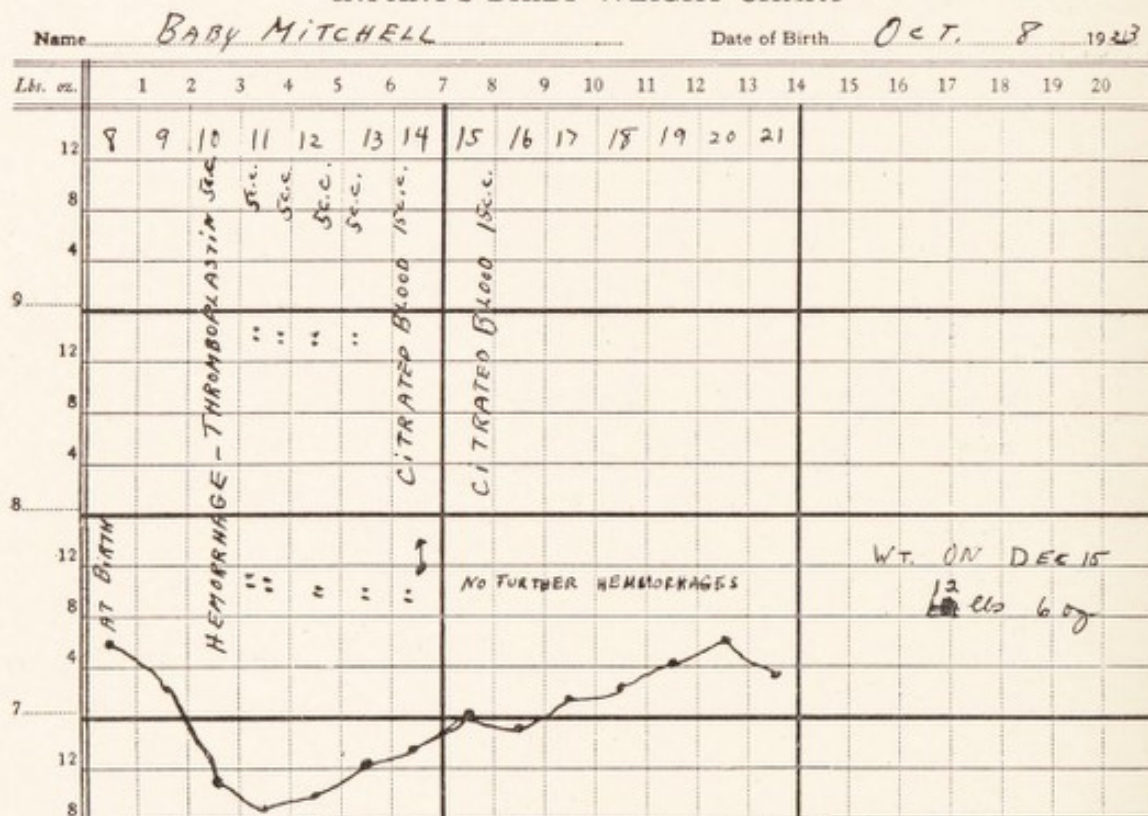 Name BABY MITCHELL Date of Birth OCT. 8 1923
Lbs. oz. 1 2 3 4 5 6 7 8 9 10 11 12 13 14 15 16 17 18 19 20
8 9 10 11 12 13 14 15 16 17 18 19 20 21
12
8
4
9
12
8
4
8
12
8
4
7
12
8
AT BIRTH
HEMORRHAGE - THROMBOPLASTIN 5c.c.
" " 5c.c.
" " 5c.c.
" " 5c.c.
" " 5c.c.
" CITRATED BLOOD 15c.c.
CITRATED BLOOD 15c.c.
NO FURTHER HEMMORHAGES
WT. ON DEC 15
12 lbs 6 oz